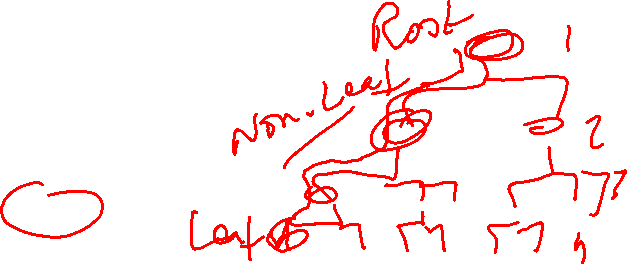 Root 1
Non-Leaf 2
3
Leaf 4